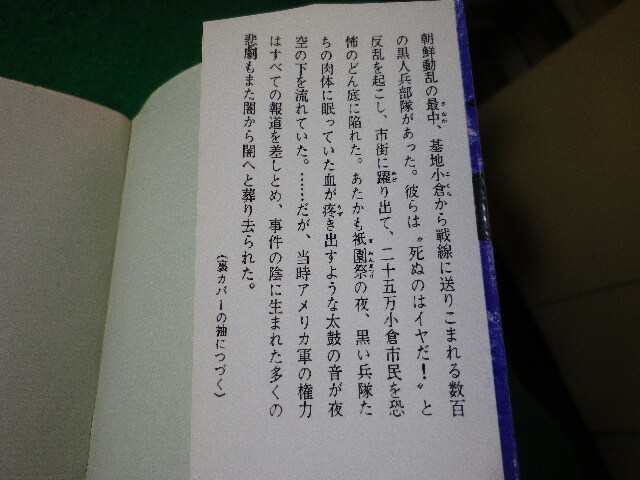 朝鮮動乱の最中、基地小倉から戦線に送りこまれる数百
の黒人兵部隊があった。彼らは〝死ぬのはイヤだ！〟と
反乱を起こし、市街に躍り出て、二十五万小倉市民を恐
怖のどん底に陥れた。あたかも祇園祭の夜、黒い兵隊た
ちの肉体に眠っていた血が疼き出すような太鼓の音が夜
空の下を流れていた。……だが、当時アメリカ軍の権力
はすべての報道を差しとめ、事件の陰に生まれた多くの
悲劇もまた闇から闇へと葬り去られた。
（裏カバーの袖につづく）